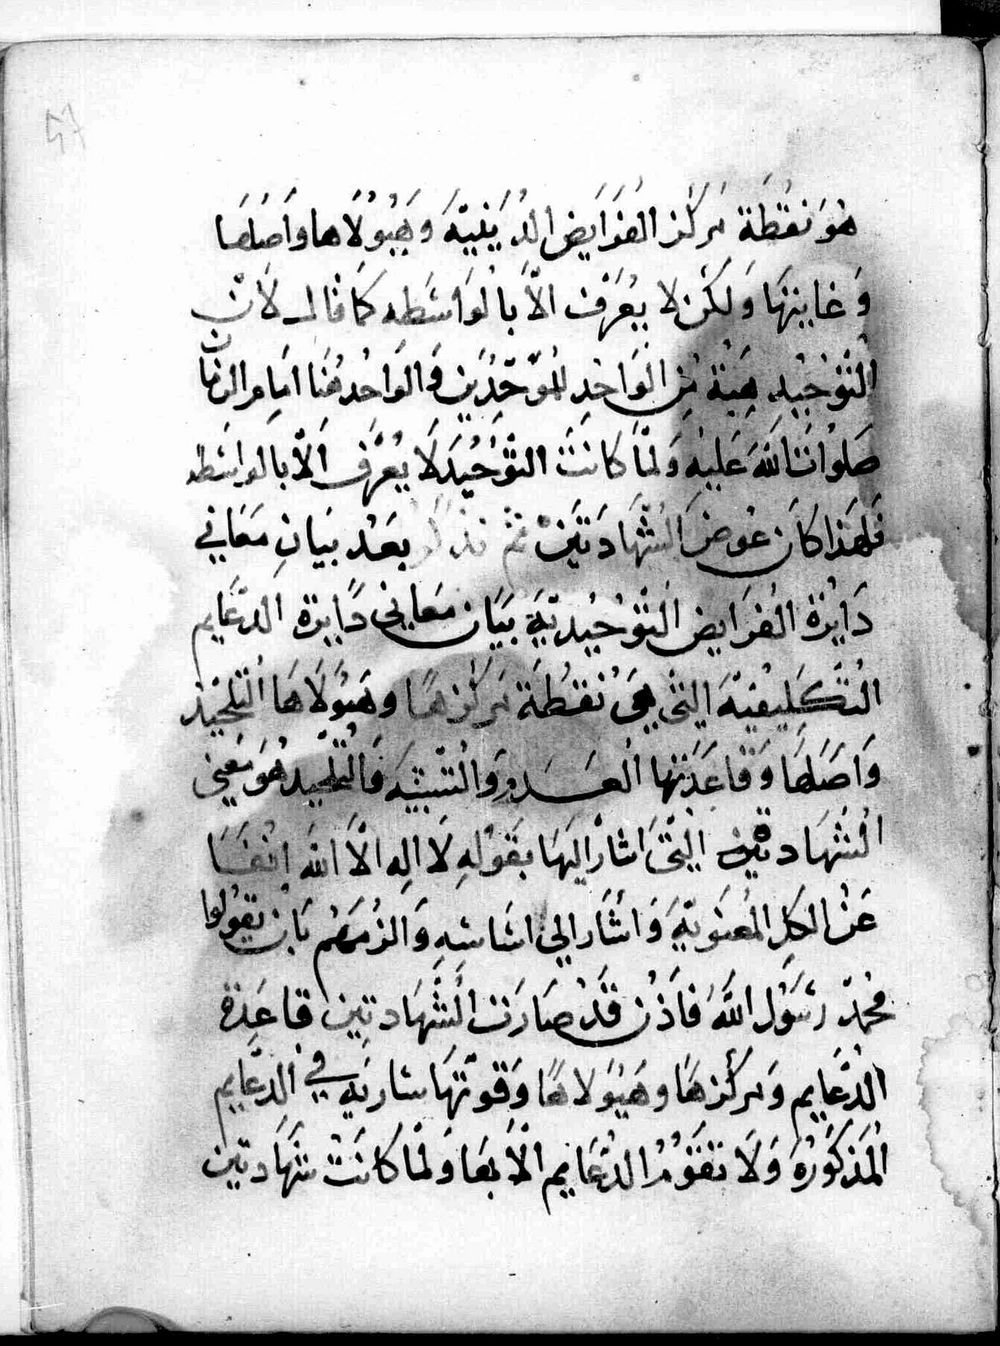 47
هُوَ نقطَة مَركز الفرَايض الدِّينيَّة وَهَيُولَاها وَاَصلَها
وَغايتهَا وَلكن لا يُعرَف الّا بالوَاسَطه كمَا قال لانّ
التَّوْحيْد هِبَة مِن الوَاحِدِ للمُوَحِّدِين وَالوَاحد هُنَا امَام الزمَان
صَلوَاتُ اللَّه عَليْه وَلمّا كانَتْ التَّوْحُيد لَا يُعْرَف الّا بالواسَطه
فَلِهَذا كَان عِوضَ الشَّهَادَتَيْن ثم نذكر بعَدْ بيَانِ مَعَاني
دَايرَة الفرَايض التَّوْحيْديّة بيَان مَعَاني دَايرة الدَّعَايم
التكليفيّة التي هيَ نقطَة مَركزهَا وهَيُولَاهَا التلحيْد
وَاصَلهَا وَقاعَدَتها العَـدَم وَالتشبيَه فَالتلحيد هُوَ مَعنى
الشهَادتيْن التيَ اشارَ اليهَا بقَوْلهِ لَا اله الّا اللَّه
عَنْ الكل المعنويّة وَاشَارَ الى اسَاسِهِ وَالزمَهُم بَان يقولوا
مُحمّد رسَوْل اللَّه فاَذنْ قَدْ صَارَت الشَّهَادتيْن قاعِدَة
الدَّعَايم وَمركزهَا وهَيُولاهَا وَقوتهَا سَاريَه في الدَّعايم
المَذكوُرَة وَلَا تقوُم الدَّعَايم الّا بهَا وَلمّا كانَتْ شهَادتين